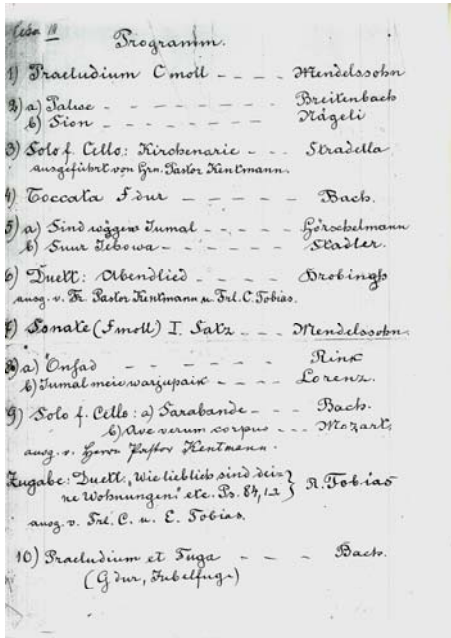 Lisa II
Programm.
1) Praeludium C moll - - - - Mendelssohn
2) a) Palwe - - - - - - - Breitenbach
b) Sion - - - - - - - Nägeli
3) Solo f. Cello: Kirchenarie - - - Stradella
ausgeführt von Hrn. Pastor Kentmann.
4) Toccata F dur - - - - - - Bach.
5) a) Sind wäggew Jumal - - - - Hörschelmann
b) Suur Jehowa - - - - - Stadler.
6) Duett: Abendlied - - - - Brobingk
ausg. v. Fr. Pastor Kentmann u. Frl. C. Tobias.
7) Sonate (F moll) I. Satz - - - Mendelssohn.
8) a) Onsad - - - - - Rink
b) Jumal meie warjupaik - - - - Lorenz.
9) Solo f. Cello: a) Sarabande - - - Bach.
b) Ave verum corpus - - - Mozart.
ausg. v. Herrn Pastor Kentmann.
Zugabe: Duett: „Wie lieblich sind dei-
ne Wohnungen" etc. Ps. 84, 1.2 } R. Tobias
ausg. v. Frl. C. u. E. Tobias.
10) Praeludium et Fuga - - - Bach.
(G dur, Jubelfuge)